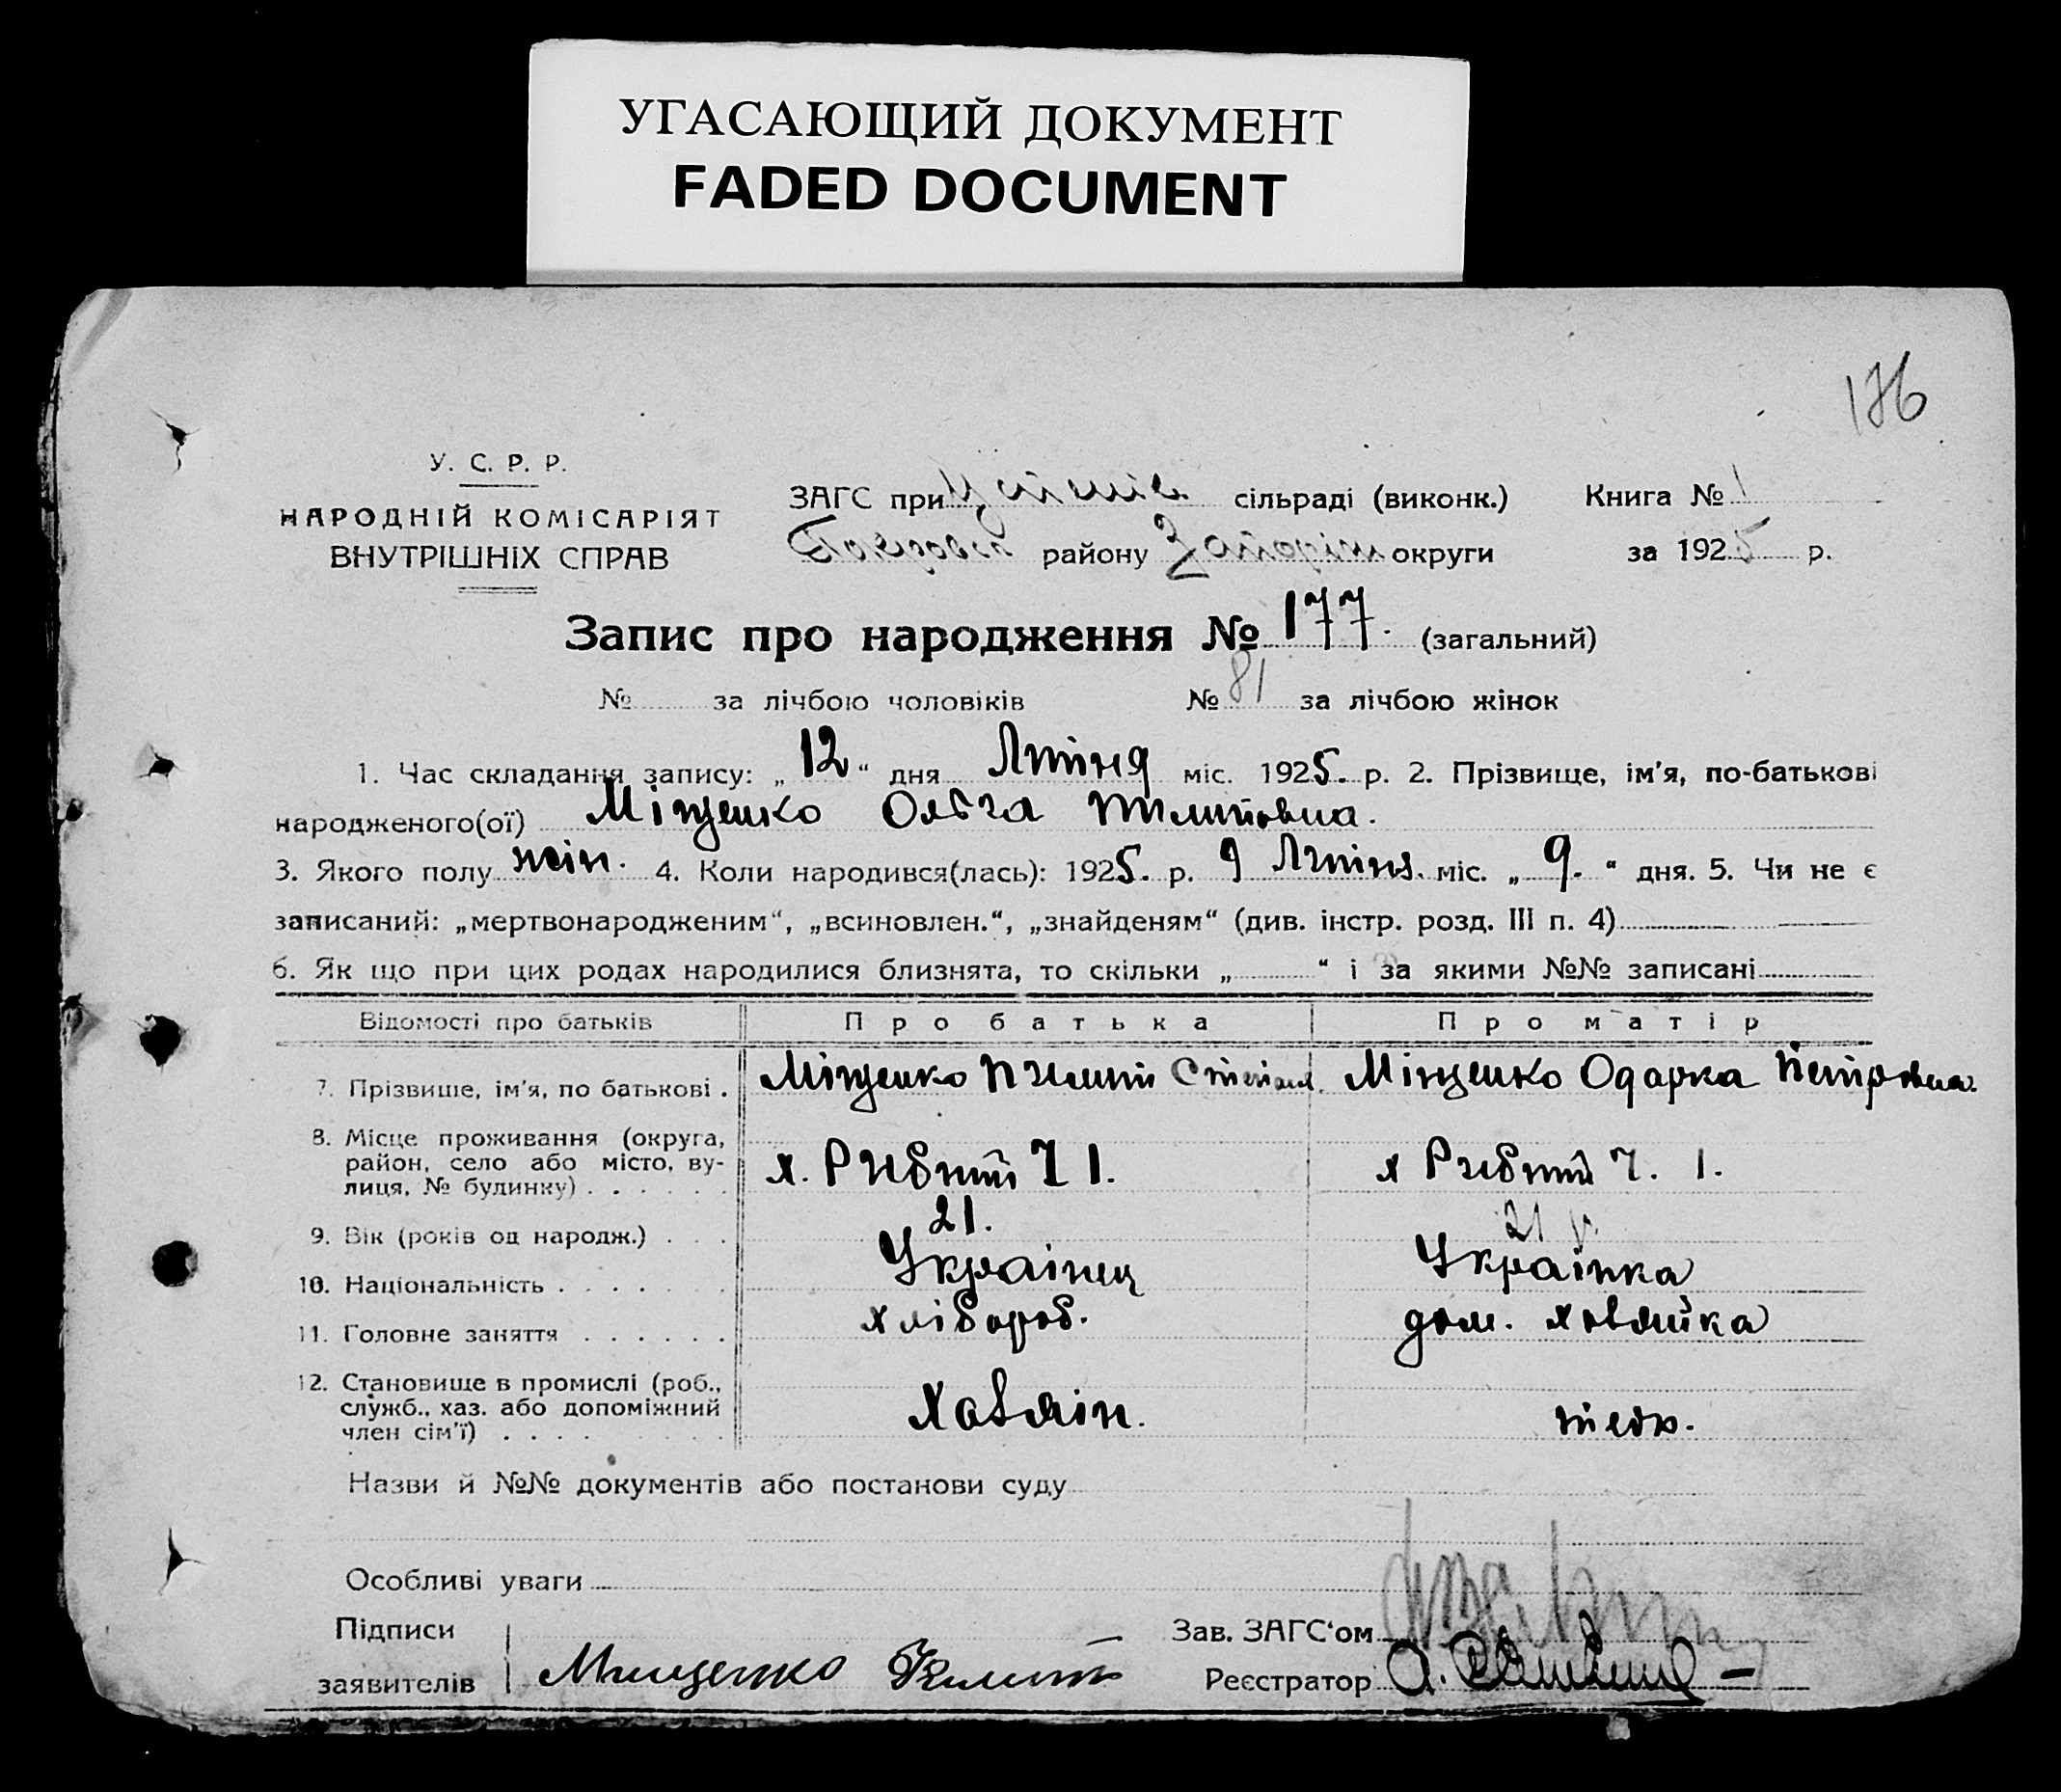 УГАСАЮЩИЙ ДОКУМЕНТ
FADED DOCUMENT
176
У. С. Р. Р.
НАРОДНІЙ КОМІСАРІЯТ
ВНУТРІШНІХ СПРАВ
ЗАГС при сільраді (виконк.) Книга № 1
району округи за 1925 р.
Запис про народження № 177. (загальний)
№ за лічбою чоловіків № 81 за лічбою жінок
1. Час складання запису: „ 12 “ дня Липня міс. 1925. р. 2. Прізвище, ім'я, по-батькові
народженого(ої) Міщенко Ольга
3. Якого полу жін. 4. Коли народився(лась): 1925. р. 9 Липня. міс. „ 9. “ дня. 5. Чи не є
записаний: „мертвонародженим“, „всиновлен.“, „знайденям“ (див. інстр. розд. III п. 4)
6. Як що при цих родах народилися близнята, то скільки „ “ і за якими №№ записані
Відомості про батьків Про батька Про матір
7. Прізвище, ім'я, по батькові . Міщенко Міщенко Одарка Петровна.
8. Місце проживання (округа,
район, село або місто, ву-
лиця, № будинку) . . . . . . х. 1. х 1.
9. Вік (років од народж.) . . . 21. 21 р.
10. Національність . . . . . . . Украінец Украінка
11. Головне заняття . . . . . . хлібороб. дом. хозяйка
12. Становище в промислі (роб.,
служб., хаз. або допоміжний
член сім'ї) . . . . Хазяїн.
Назви й №№ документів або постанови суду
Особливі уваги
Підписи Зав. ЗАГС'ом
заявителів Мищенко Реєстратор